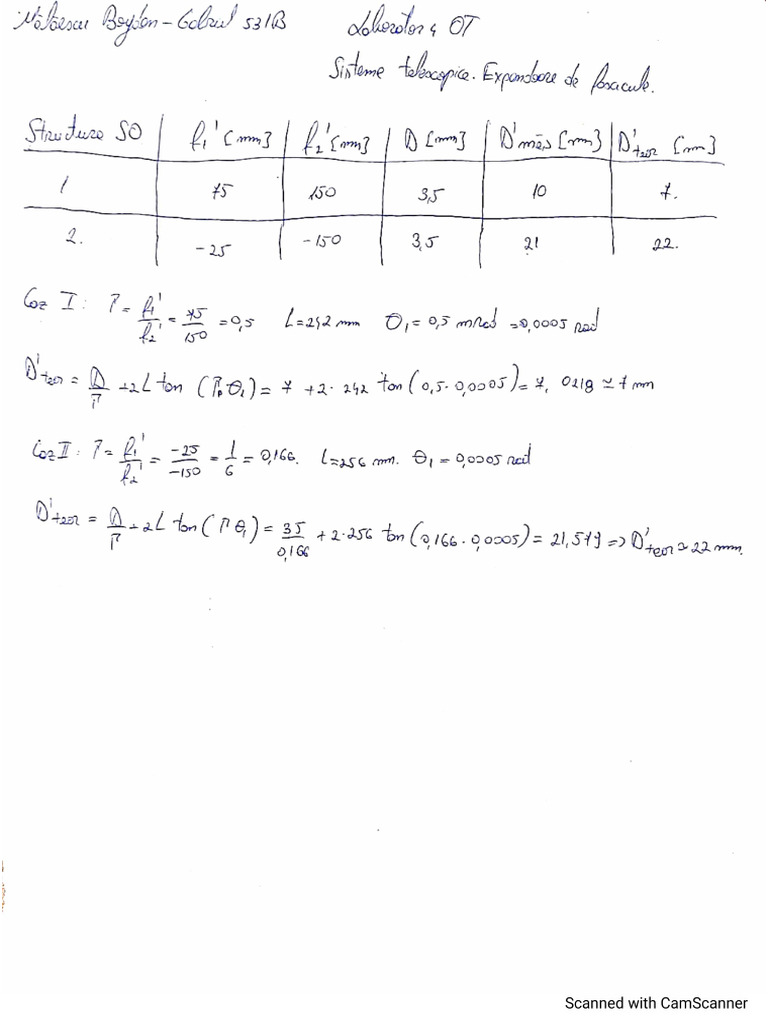 Bogdan-Gabriel 531B
Laborator 4 OT
Sisteme telescopice. Expandoare de fascicule.
Structura SO | f₁' [mm] | f₂' [mm] | D [mm] | D'măs [mm] | D'teor [mm]
1 | 75 | 150 | 3,5 | 10 | 7.
2. | -25 | -150 | 3,5 | 21 | 22.
Caz I: Γ = f₁'/f₂' = 75/150 = 0,5 L=242 mm θ₁ = 0,5 mRad = 0,0005 rad
D'teor = D/Γ + 2L tan (Γ·θ₁) = 7 + 2·242 tan(0,5·0,0005) = 7,0218 ≃ 7 mm
Caz II: Γ = f₁'/f₂' = -25/-150 = 1/6 = 0,166. L=256 mm. θ₁ = 0,0005 rad
D'teor = D/Γ + 2L tan(Γθ₁) = 35/0,166 + 2·256 tan(0,166·0,0005) = 21,579 => D'teor ≃ 22 mm.
Scanned with CamScanner